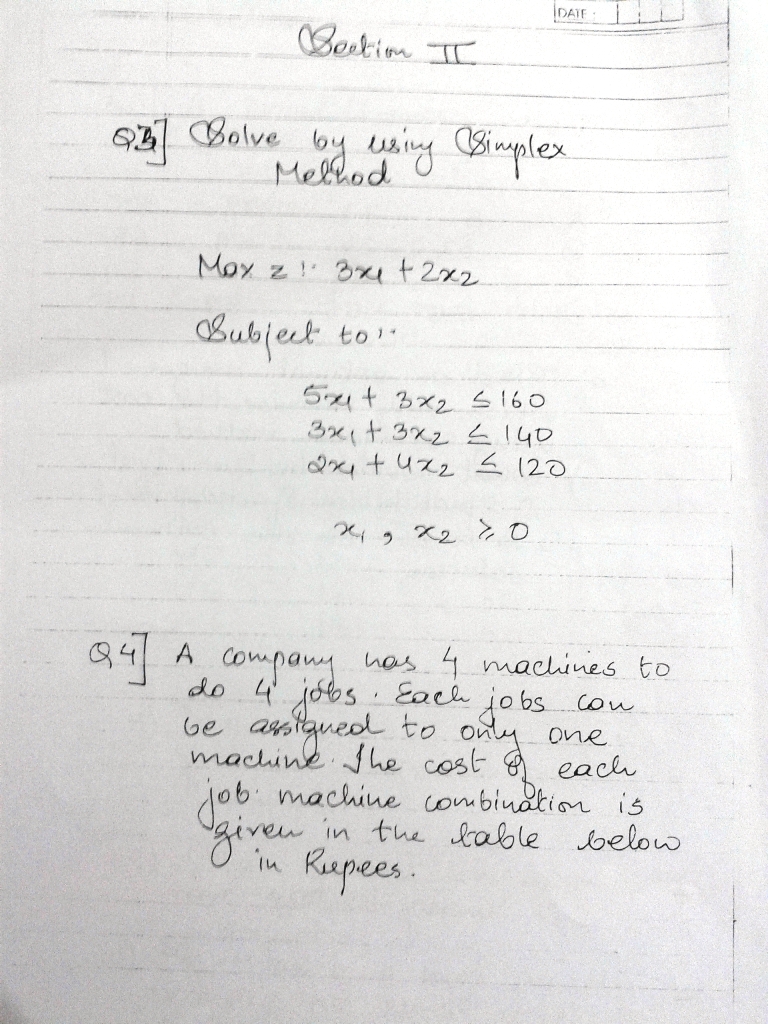 DATE:
Section II
Q3] Solve by using Simplex
Method
Max z :- 3x1 + 2x2
Subject to :-
5x1 + 3x2 ≤ 160
3x1 + 3x2 ≤ 140
2x1 + 4x2 ≤ 120
x1, x2 ≥ 0
Q4] A company has 4 machines to
do 4 jobs. Each jobs can
be assigned to only one
machine. The cost of each
job. machine combination is
given in the table below
in Rupees.